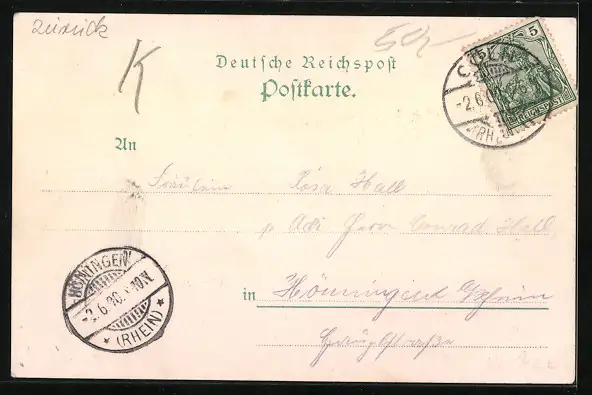 zurück
K
50,-
Deutsche Reichspost
Postkarte.
5
REICHSPOST
CÖLN
-2.6.
(RHEIN)
An
Fräulein Rosa Hall
Herrn Conrad Hall
in Hönningen a/Rhein
Hauptstraße
HÖNINGEN
-2.6.00.
(RHEIN)